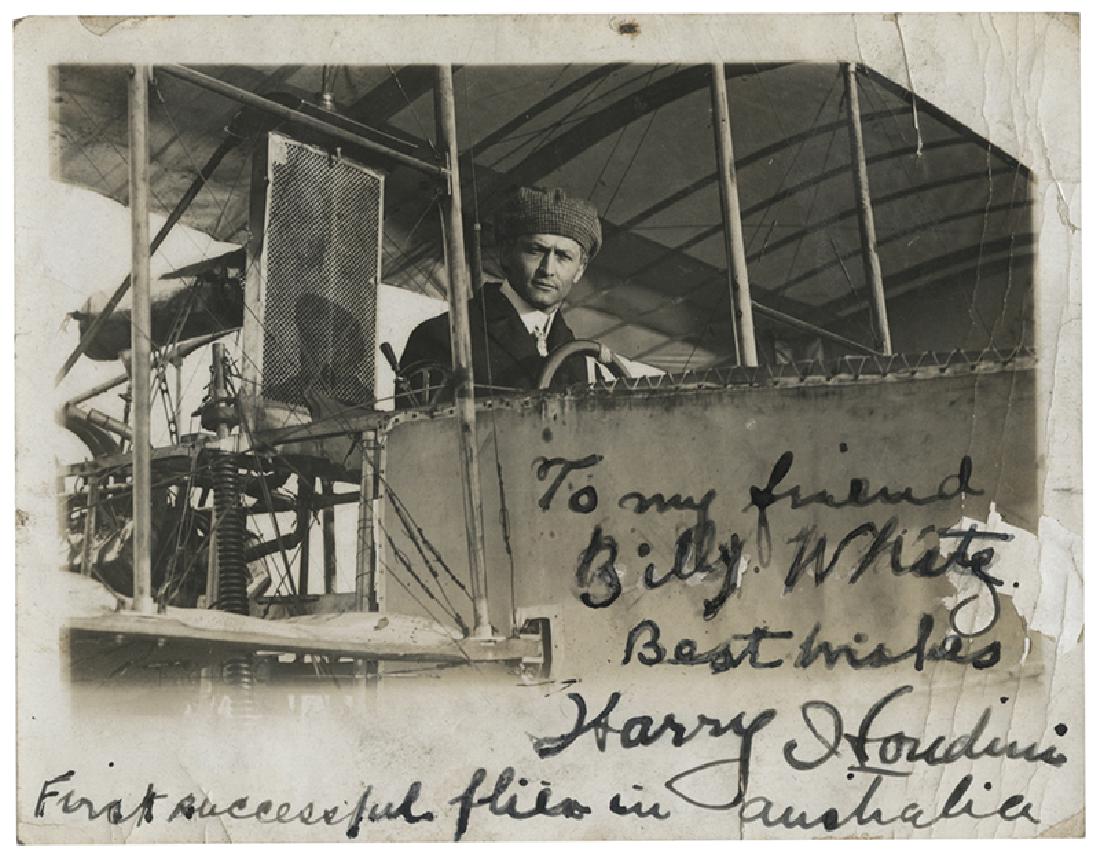 To my friend
Billy. White.
Best wishes
Harry Houdini
First successful flier in australia